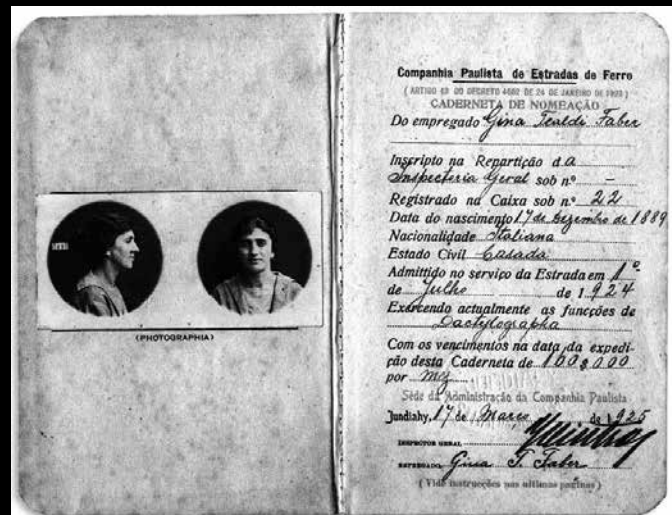 (PHOTOGRAPHIA)
Companhia Paulista de Estradas de Ferro
CADERNETA DE NOMEAÇÃO
Do empregado Gina Tealdi Faber
Inscripto na Repartição da
Inspectoria Geral sob n.º –
Registrado na Caixa sob n.º 22
Data do nascimento 17 de Dezembro de 1889
Nacionalidade Italiana
Estado Civil Casada
Admittido no serviço da Estrada em 1º
de Julho de 1924
Exercendo actualmente as funcções de
Dactylographa
Com os vencimentos na data da expedi-
ção desta Caderneta de 100$000
por mez
Séde da Administração da Companhia Paulista
Jundiahy, 17 de Março de 1925
INSPECTOR GERAL
EMPREGADO, Gina T. Faber
(Vide instrucções nas ultimas paginas)